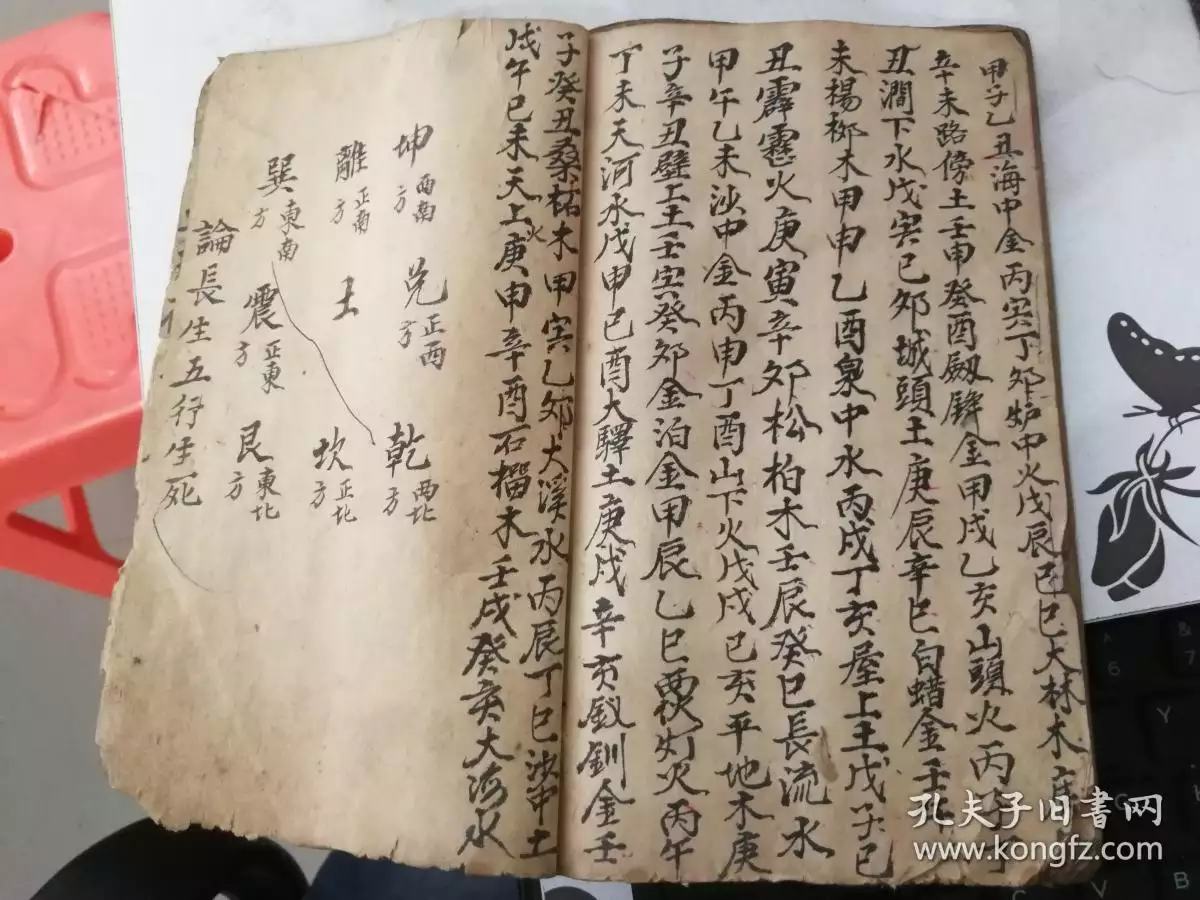 甲子乙丑海中金丙寅丁卯炉中火戊辰己巳大林木庚午
辛未路傍土壬申癸酉劔鋒金甲戌乙亥山頭火丙子丁
丑澗下水戊寅己卯城頭土庚辰辛巳白蜡金壬午
未楊柳木甲申乙酉泉中水丙戌丁亥屋上土戊子己
丑霹靂火庚寅辛卯松柏木壬辰癸巳長流水
甲午乙未沙中金丙申丁酉山下火戊戌己亥平地木庚
子辛丑壁上土壬寅癸卯金泊金甲辰乙巳覆灯火丙午
丁未天河水戊申己酉大驛土庚戌辛亥釵釧金壬
子癸丑桑柘木甲寅乙卯大溪水丙辰丁巳沙中土
戊午己未天上火庚申辛酉石榴木壬戌癸亥大海水
坤西南方 兌正西方 乾西北方
離正南方 土 坎正北方
巽東南方 震正東方 艮東北方
論長生五行生死
孔夫子旧書网
www.kongfz.com